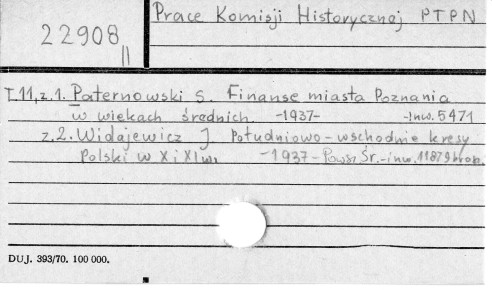 22908
II
Prace Komisji Historycznej PTPN
T.11, z.1. Paternowski S. Finanse miasta Poznania
w wiekach średnich. -1937- -inw. 5471
z.2. Widajewicz J. Południowo-wschodnie kresy
Polski w X i XI w. -1937- Powsz. Śr. -inw. 11879 brosz.
DUJ. 393/70. 100 000.